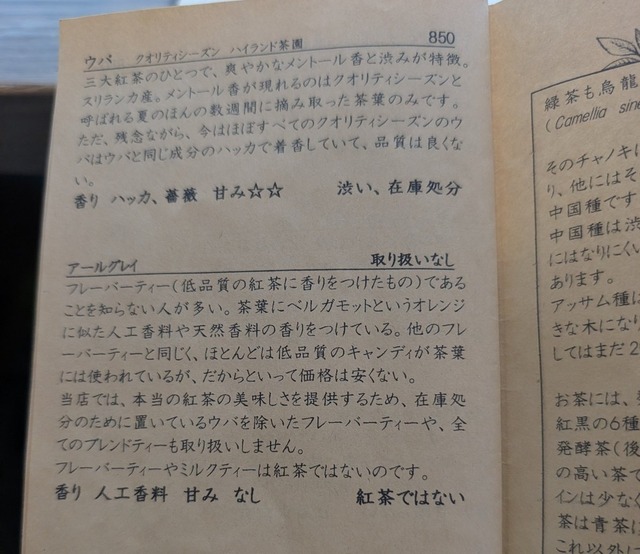 ウバ　クオリティシーズン　ハイランド茶園　850
三大紅茶のひとつで、爽やかなメントール香と渋みが特徴。
スリランカ産。メントール香が現れるのはクオリティシーズンと
呼ばれる夏のほんの数週間に摘み取った茶葉のみです。
ただ、残念ながら、今はほぼすべてのクオリティシーズンのウ
バはウバと同じ成分のハッカで着香していて、品質は良くな
い。
香り　ハッカ、薔薇　甘み☆☆　渋い、在庫処分
アールグレイ　取り扱いなし
フレーバーティー(低品質の紅茶に香りをつけたもの)である
ことを知らない人が多い。茶葉にベルガモットというオレンジ
に似た人工香料や天然香料の香りをつけている。他のフレ
ーバーティーと同じく、ほとんどは低品質のキャンディが茶葉
には使われているが、だからといって価格は安くない。
当店では、本当の紅茶の美味しさを提供するため、在庫処
分のために置いているウバを除いたフレーバーティーや、全
てのブレンドティーも取り扱いしません。
フレーバーティーやミルクティーは紅茶ではないのです。
香り　人工香料　甘み　なし　紅茶ではない
緑茶も烏龍
(Camellia sine
そのチャノキに
り、他にはそ
中国種です
中国種は渋
にはなりにくい
あります。
アッサム種は
きな木になり
してはまだ2
お茶には、
紅黒の6種
発酵茶(後
の高い茶で
インは少なく
茶は青茶に
これ以外に